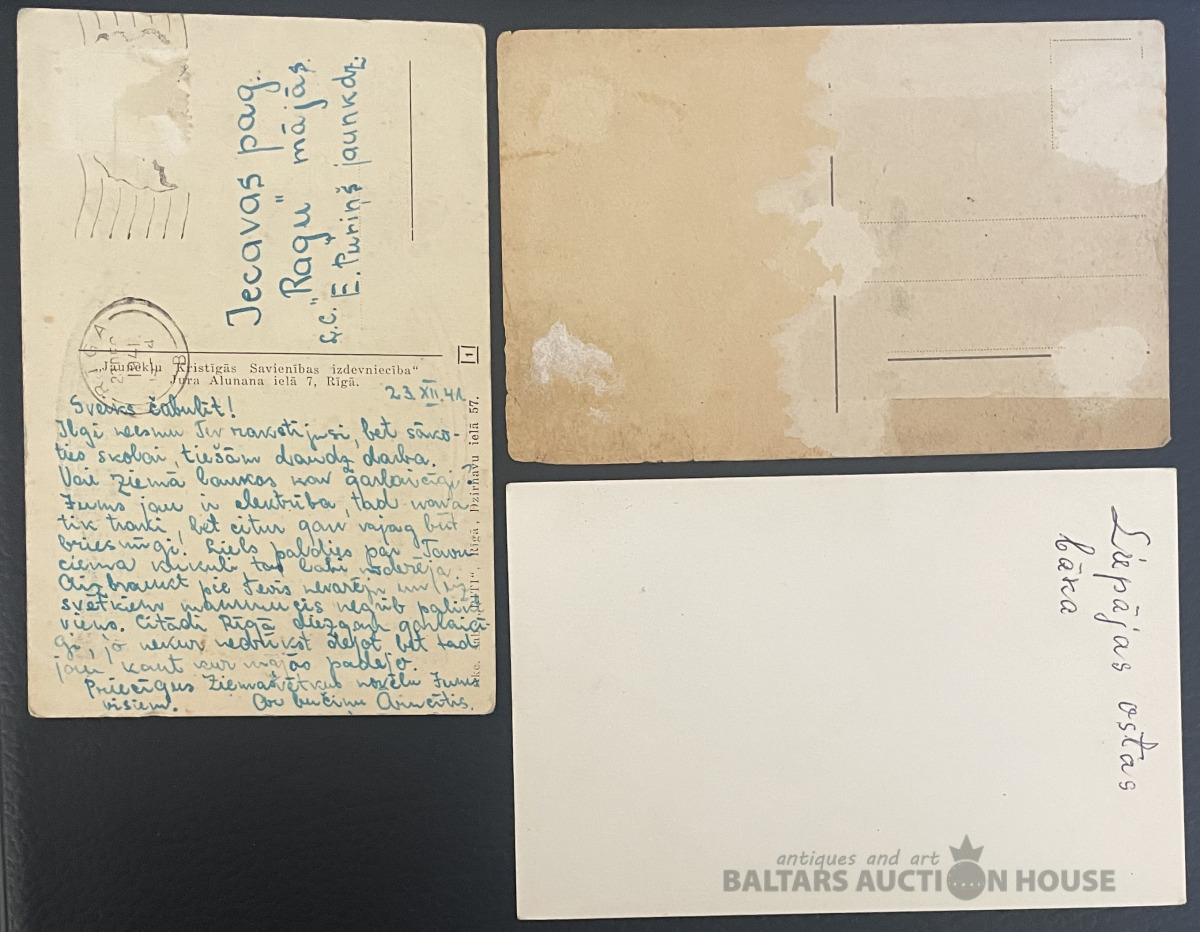 Iecavas pag.
"Ragu" mājās
E. Puriņš jaunkdz.
RIGA
1941
B
1
„Jaunekļu Kristīgās Savienības izdevniecība“
Jura Alunana ielā 7, Rīgā.
Rīgā, Dzirnavu ielā 57.
23.XII.41
Sveiks čabulīt!
Ilgi neesmu Tev rakstījusi, bet sāko-
ties skolai, tiešām daudz darba.
Vai ziemā laukos nav garlaicīgi?
Jums jau ir elektrība, tad nava
tik traki, bet citur gan vajag būt
briesmīgi. Liels paldies par Tavu
ciema kukuli tas labi noderēja.
Aizbraukt pie Tevis nevarēju un uz
svētkiem negrib palikt
viens. Citādi Rīgā diezgan garlaicī-
gi, jo nekur nedrīkst dejot, bet tad
jau kaut kur mājās padejo.
Priecīgus Ziemasvētkus novēlu Jums
visiem. bučiņu
Liepājas ostas
bāka
antiques and art
BALTARS AUCTION HOUSE